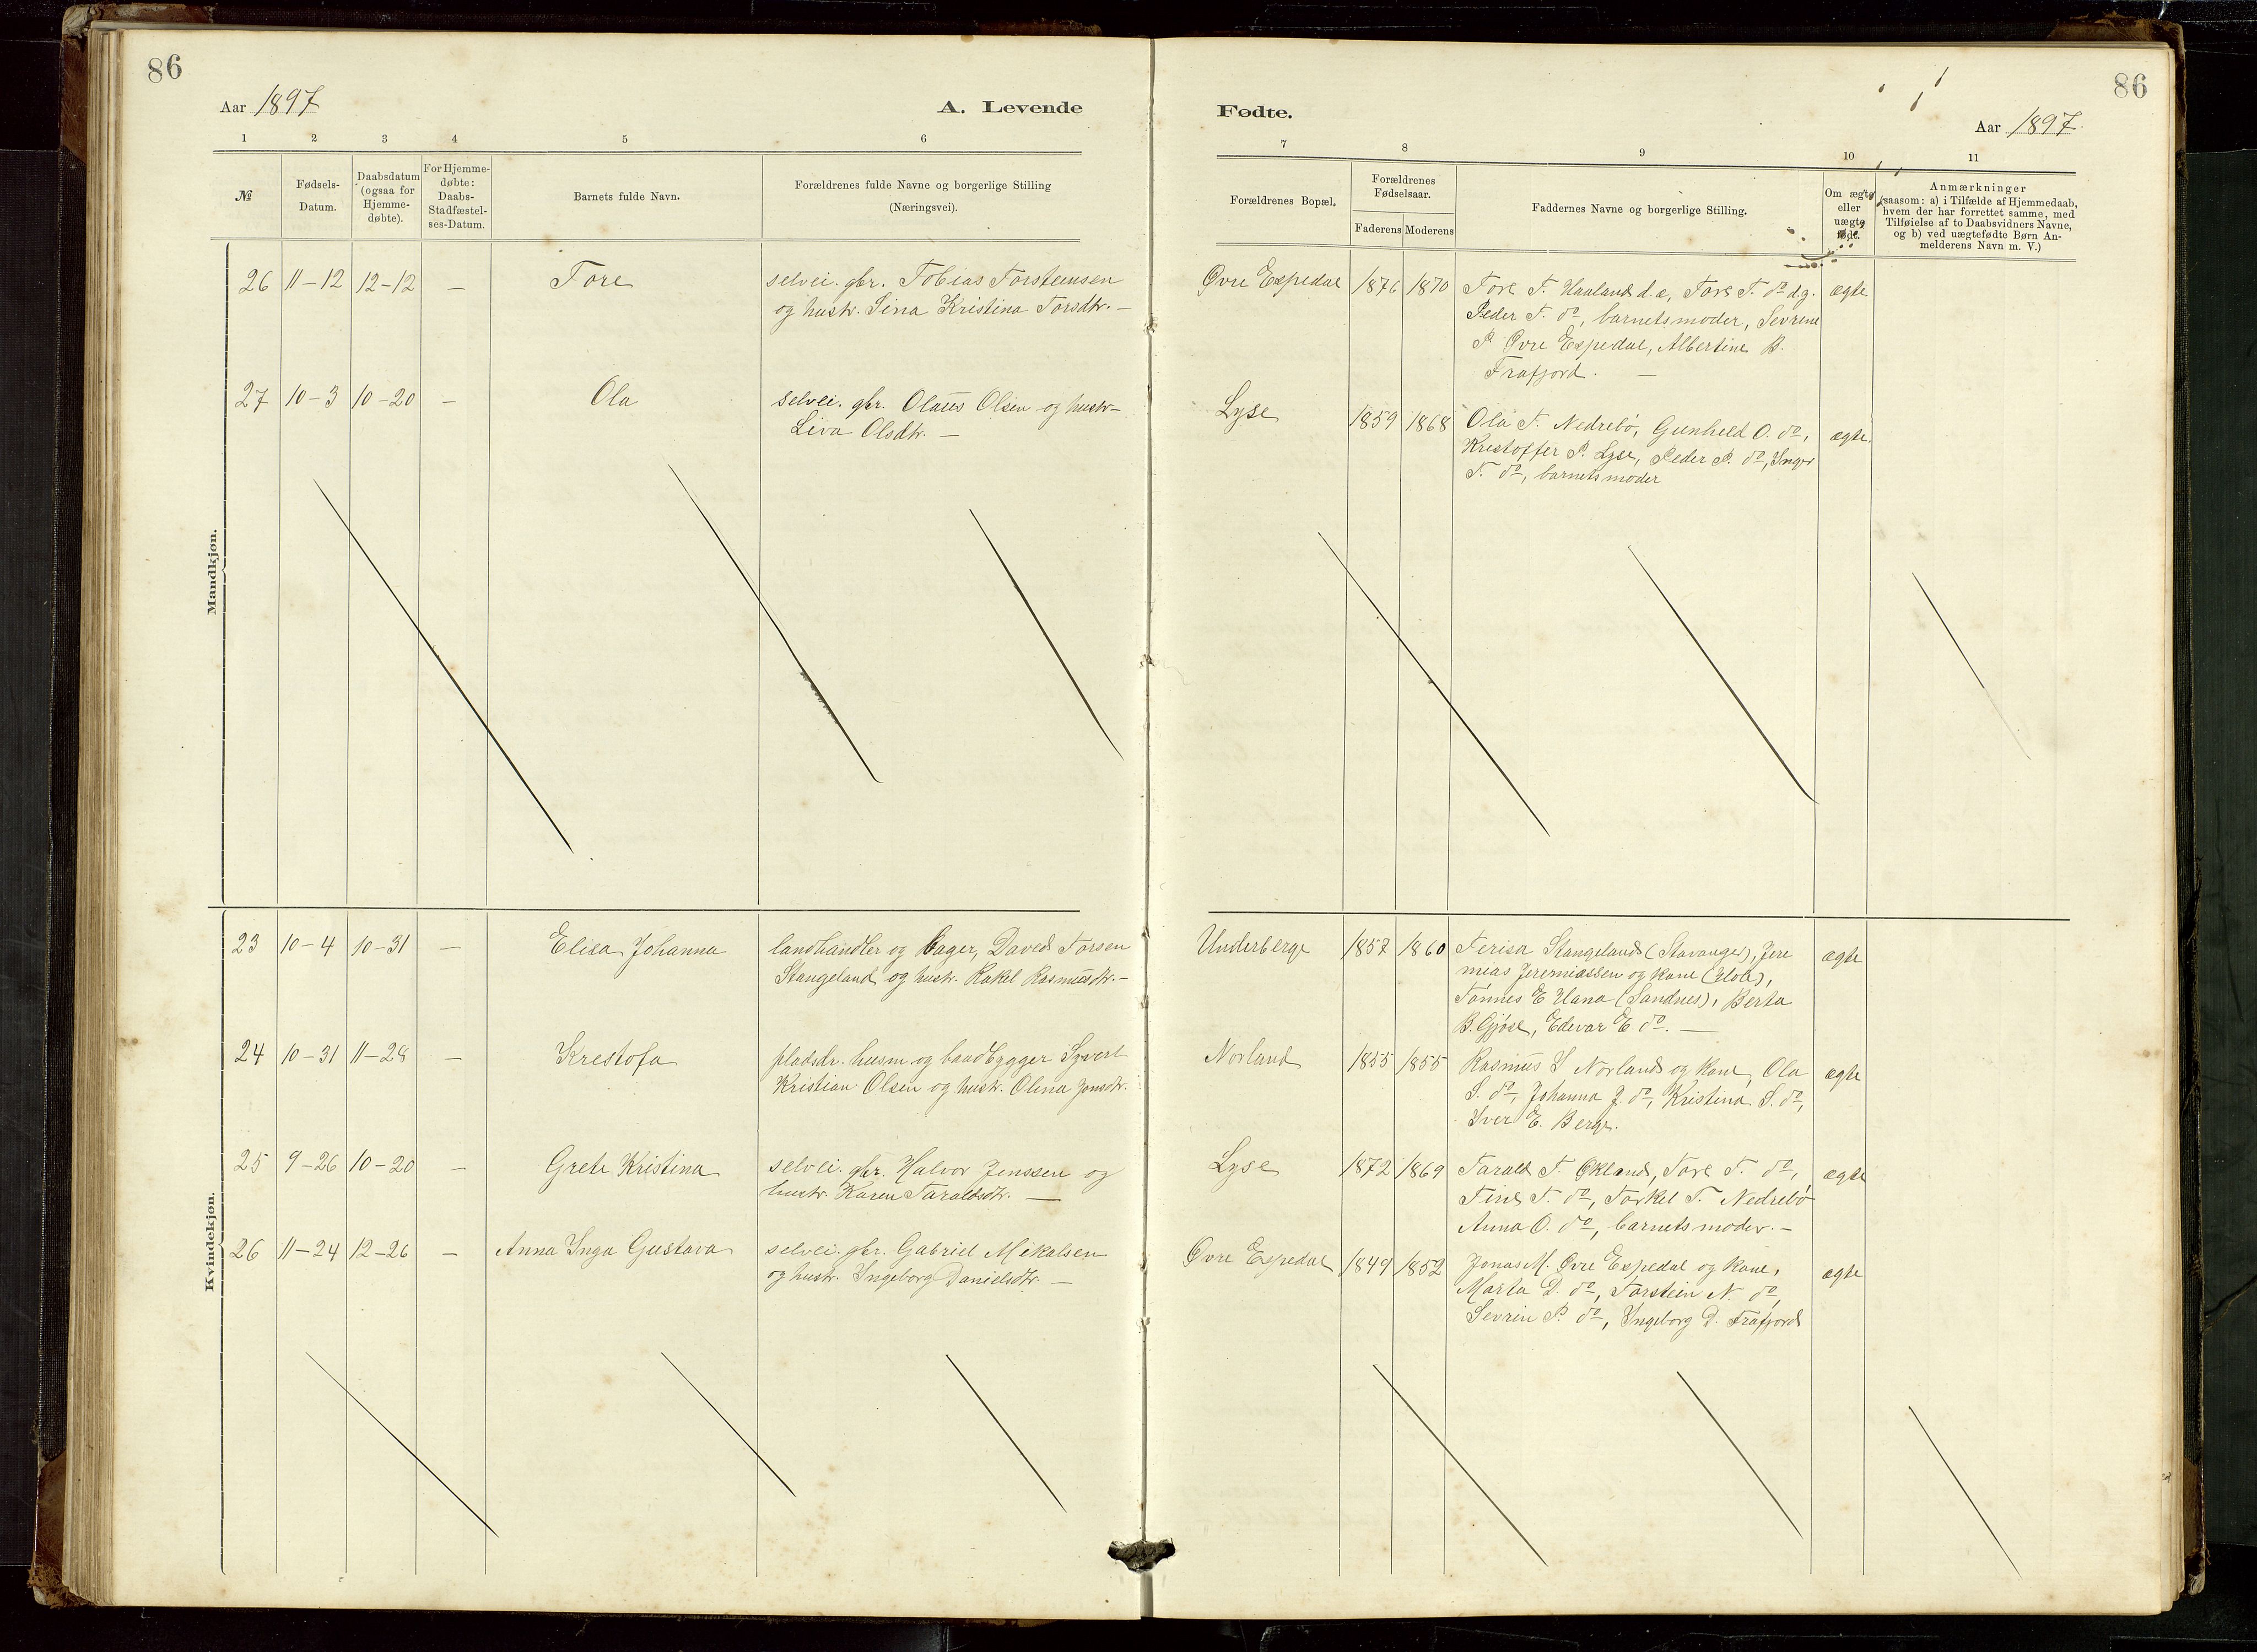 86
Aar 1897
A. Levende
1 2 3 4 5 6
№
Fødsels-
Datum.
Daabsdatum
(ogsaa for
Hjemme-
døbte).
For Hjemme-
døbte:
Daabs-
Stadfæstel-
ses-Datum.
Barnets fulde Navn.
Forældrenes fulde Navne og borgerlige Stilling
(Næringsvei).
Mandkjøn.
26 11-12 12-12 — Tore selvei. gbr. Tobias Torsteinsen
og hustr. Sina Kristina Torsdtr. —
27 10-3 10-20 — Ola selvei. gbr. Olaus Olsen og hustr.
Liva Olsdtr. —
Kvindekjøn.
23 10-4 10-31 — Elisa Johanna landhandler og Bager, David Torsen
Stangeland og hustr. Rakel Rasmusdtr. —
24 10-31 11-28 — Kristofa pladsbr. husm og baadbygger Syvert
Kristian Olsen og hustr. Olena Jonsdtr.
25 9-26 10-20 — Grete Kristina selvei. gbr. Halvor Jenssen og
hustr. Karen Taraldsdtr. —
26 11-24 12-26 — Anna Inga Gustava selvei. gbr. Gabriel Mikalsen
og hustr. Ingeborg Danielsdtr. —
86
Fødte.
Aar 1897.
7 8 9 10 11
Forældrenes Bopæl.
Forældrenes
Fødselsaar.
Faderens Moderens
Faddernes Navne og borgerlige Stilling.
Om ægte
eller
uægte
født.
Anmærkninger
(saasom: a) i Tilfælde af Hjemmedaab,
hvem der har forrettet samme, med
Tilføielse af to Daabsvidners Navne,
og b) ved uægtefødte Børn An-
melderens Navn m. V.)
Øvre Espedal 1876 1870 Tore T. Haaland d.e, Tore T. do d.y. ægte
Peder T. do, barnets moder, Sevrine
P. Øvre Espedal, Albertine B.
Frafjord. —
Lyse 1859 1868 Ola T. Nedrebö, Gunhild O. do, ægte.
Kristoffer P. Lyse, Peder P. do, Inger
T. do, barnets moder
Underberge 1857 1860 Terisa Stangeland (Stavanger), Jere ægte
mias Jeremiassen og kone (Hole),
Tönnes E Hana (Sandnes), Berta
B. Gjöse, Edevar E. do. —
Norland 1855 1855 Rasmus S Norland og kone, Ola ægte
S. do, Johanna J. do, Kristina S. do,
Iver E. Berge.
Lyse 1872 1869 Tarald T. Økland, Tore T. do, ægte
Tine T. do, Torkel T. Nedrebö
Anna O. do, barnets moder. —
Øvre Espedal 1849 1852 Jonas M. Øvre Espedal og kone, ægte
Marta D. do, Torstein N. do,
Sevrin P. do, Ingeborg D. Frafjord